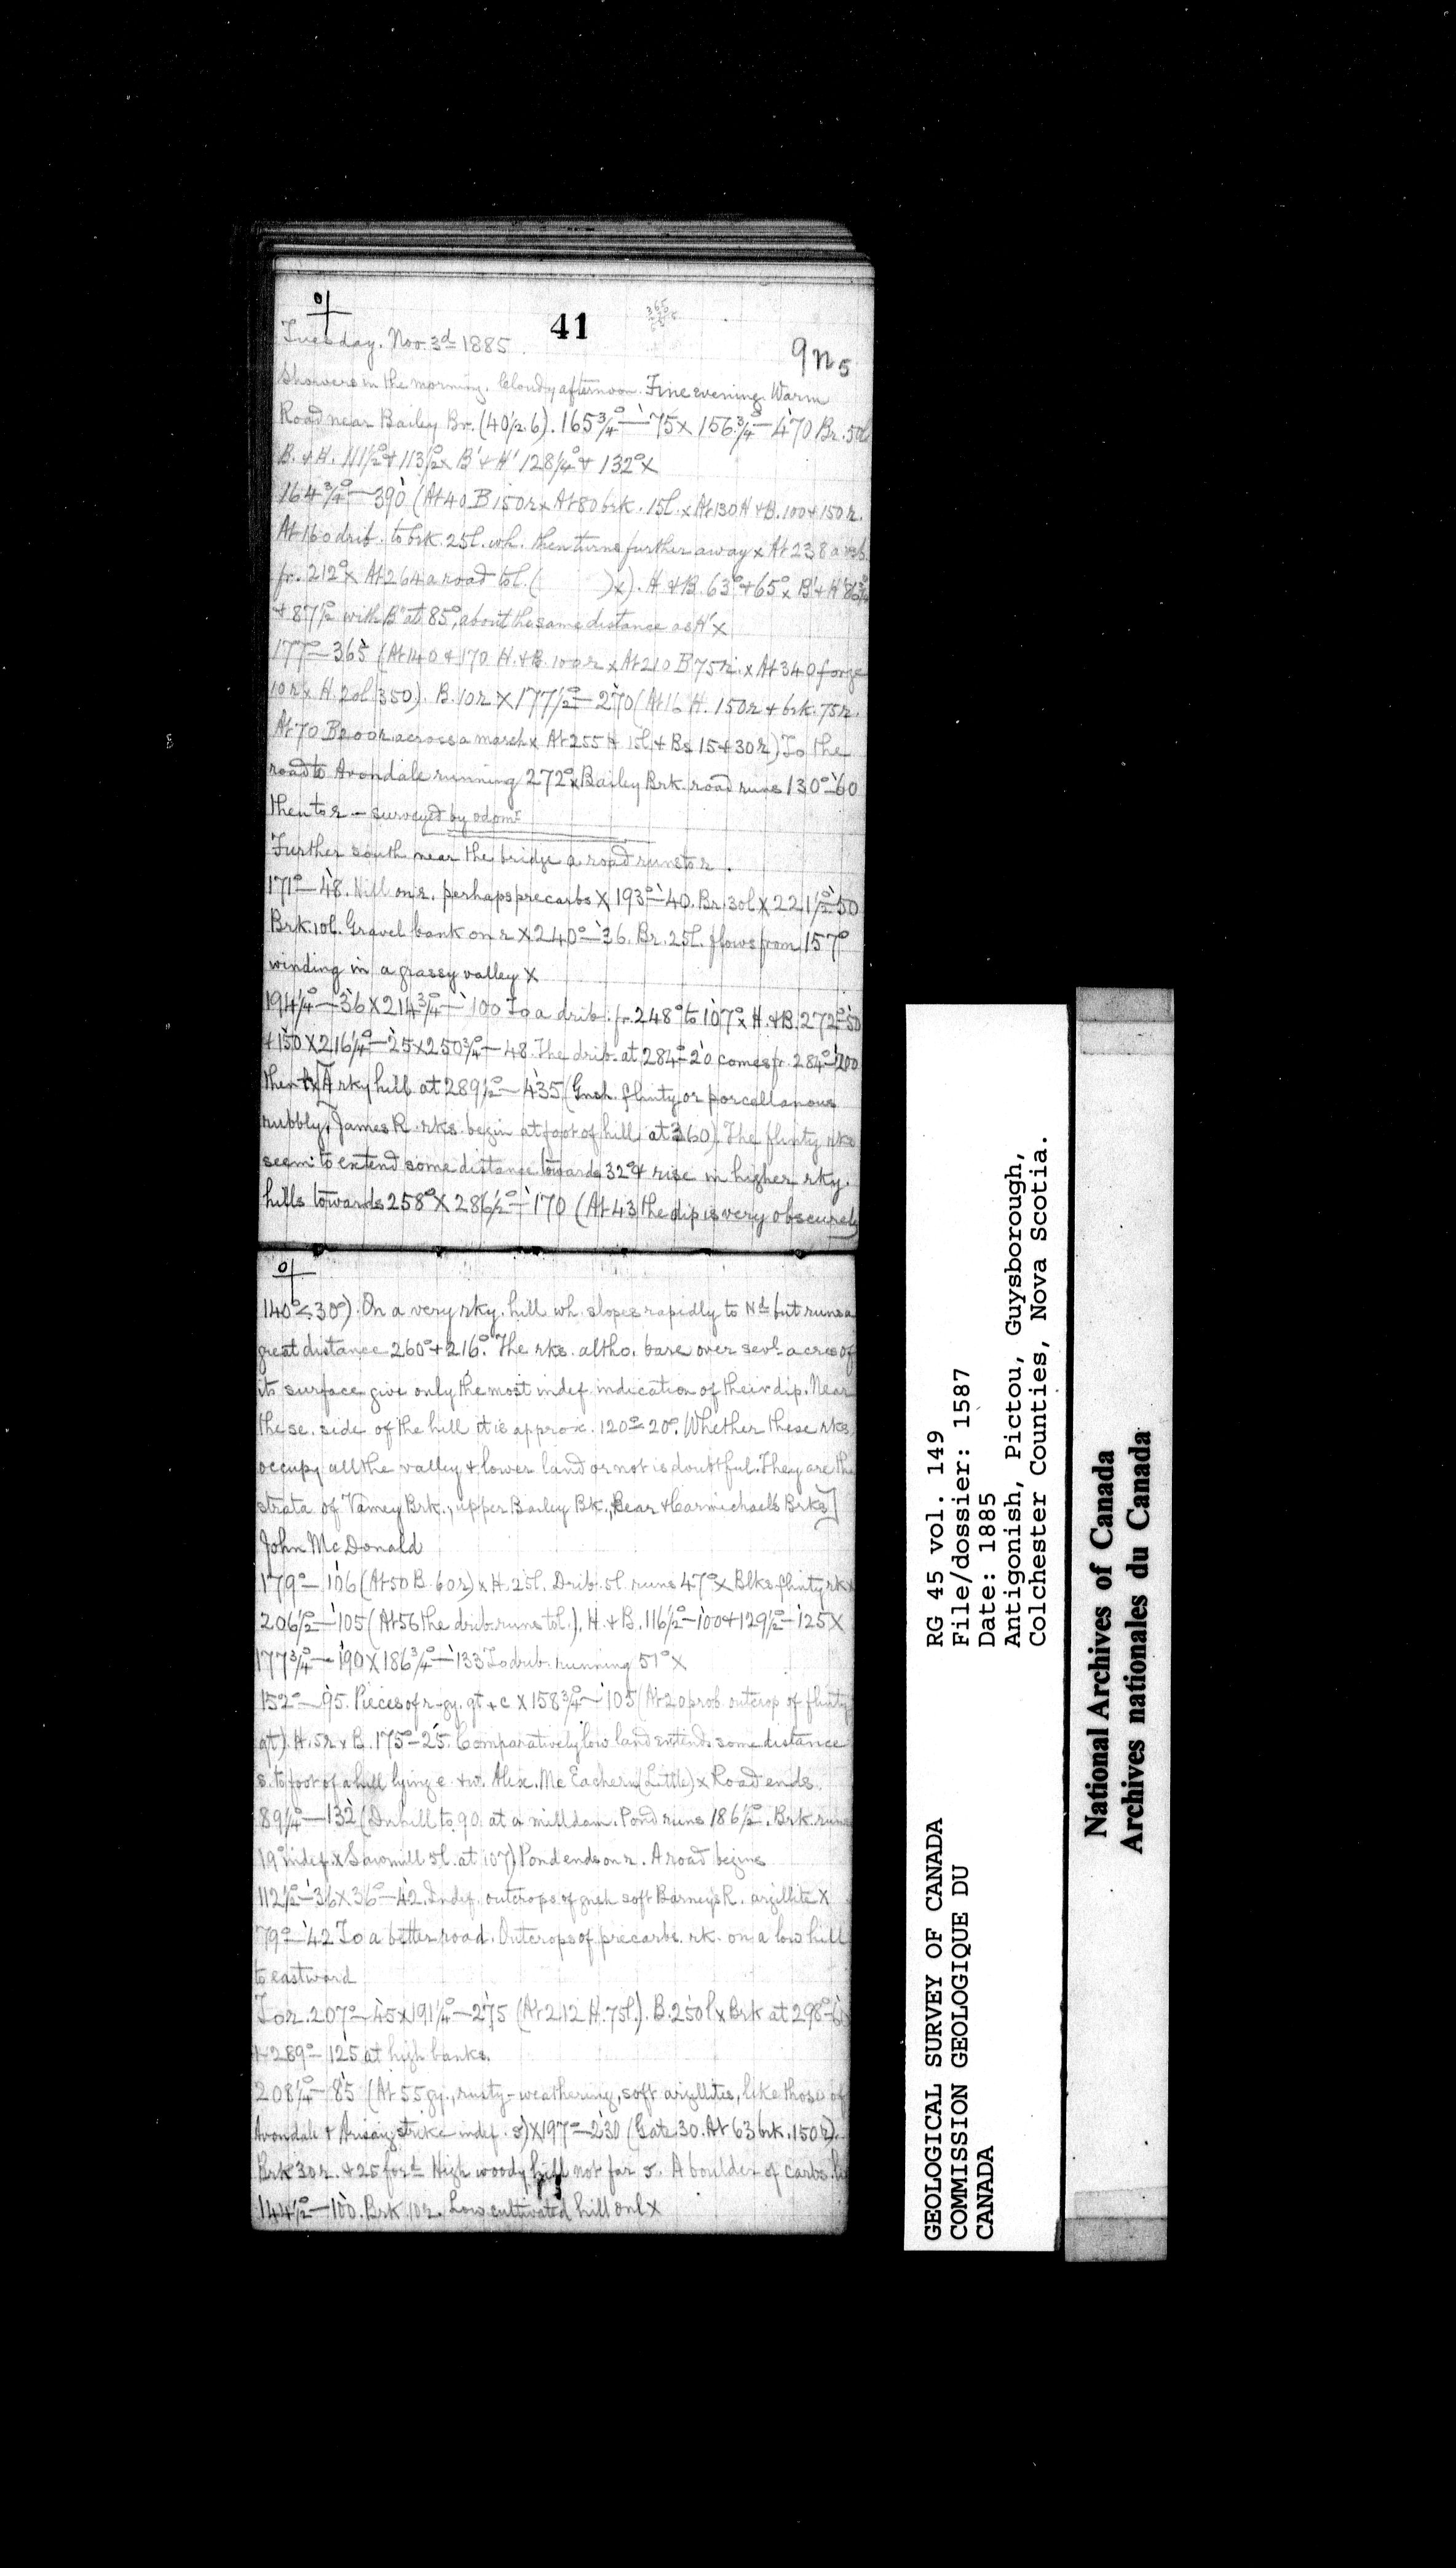 41
9n5
Tuesday. Nov. 3d 1885
Showers in the morning. Cloudy afternoon. Fine evening. Warm
Road near Bailey Br. (40½.6). 165¾°—75 x 156¾°—470 Br. 50l
B. & H. 111½° & 113½ x B' & H' 128¼° & 132° x
164¾°—390 (At 40 B 150r x At 80 brk. 15l. x At 130 H & B. 100 & 150 r.
At 160 drib. to brk. 25l. wh. then turns further away x At 238 a
fr. 212° x At 264 a road to l. ( )x). H & B. 63° & 65° x B' & H'
& 87½ with B" at 85°, about the same distance as H' x
177°—365 (At 140 & 170 H. & B. 100 r x At 210 B 75r. x At 340 forge
10 r x H. 20l 350). B. 10r X 177½°—270 (At 16 H. 150r & brk. 75r.
At 70 B 200r. across a marsh x At 255 H 15l & Bs 15 & 30 r) To the
road to Avondale running 272° x Bailey Brk. road runs 130°—60
then to r — surveyed by odomr
Further south near the bridge a road runs to r.
171°—48. Hill on r. perhaps precarbs X 193°—40. Br. 30l X 221½°—50
Brk. 10l. Gravel bank on r X 240°—36. Br. 25l. flows from 157°
winding in a grassy valley X
194¼°—36 X 214¾°—100 To a drib. fr. 248° to 107° x H. & B. 272°—50
& 150 X 216¼°—25 x 250¾°—48. The drib. at 284°—20 comes fr. 284°—200
then [A rky hill at 289½°—435 (Gnsh. flinty or porcellanous
rubbly, James R. rks. begin at foot of hill at 360). The flinty rks
seem to extend some distance towards 32° & rise in higher rky.
hills towards 258° X 286½°—170 (At 43 the dip is very obscurely
140°<30°). On a very rky. hill wh. slopes rapidly to Nd. but runs a
great distance 260° & 216°. The rks. altho. bare over sevl. acres of
its surface give only the most indef. indication of their dip. Near
the se. side of the hill it is approx. 120°<20°. Whether these rks.
occupy all the valley & lower land or not is doubtful. They are the
strata of Vamey Brk., upper Bailey Bk., Bear & Carmichael's Brks]
John McDonald
179°—106 (At 50 B. 60r) x H. 25l. Drib. 5l. runs 47° x Blks flinty rk x
206½°—105 (At 56 the drib. runs to l.). H. & B. 116½°—100 & 129½°—125 X
177¾°—190 X 186¾°—133 To drib. running 51° X
152°—95. Pieces of r-gy. qt & c X 158¾°—105 (At 20 prob. outcrop of flinty
qt). H. 5r x B. 175°—25. Comparatively low land extends some distance
s. to foot of a hill lying e. & w. Alex. McEachern (Little) x Road ends.
89¼°—132 (Dn hill to 90. at a milldam. Pond runs 186½°. Brk. runs
19° indef. x Sawmill 5l. at 107) Pond ends on r. A road begins
112½°—36 X 36°—42. Indef. outcrops of gnsh soft Barneys R. argillite X
79°—42 To a better road. Outcrops of precarbs. rk. on a low hill
to eastward
To r. 207°—45 x 191¼°—275 (At 212 H. 75l.). B. 250 l x Brk at 298°—60
& 289°—125 at high banks.
208¼°—85 (At 55 gy., rusty-weathering, soft argillites, like those of
Avondale & Arisaig strike indef. s) X 197°—230 (Gate 30. At 63 brk. 150 r).
Brk 30r. & 25 ford High woody hill not far s. A boulder of carbs.
144½°—100. Brk. 10r. Low cultivated hill on l X
GEOLOGICAL SURVEY OF CANADA
COMMISSION GEOLOGIQUE DU
CANADA
RG 45 vol. 149
File/dossier: 1587
Date: 1885
Antigonish, Pictou, Guysborough,
Colchester Counties, Nova Scotia.
National Archives of Canada
Archives nationales du Canada